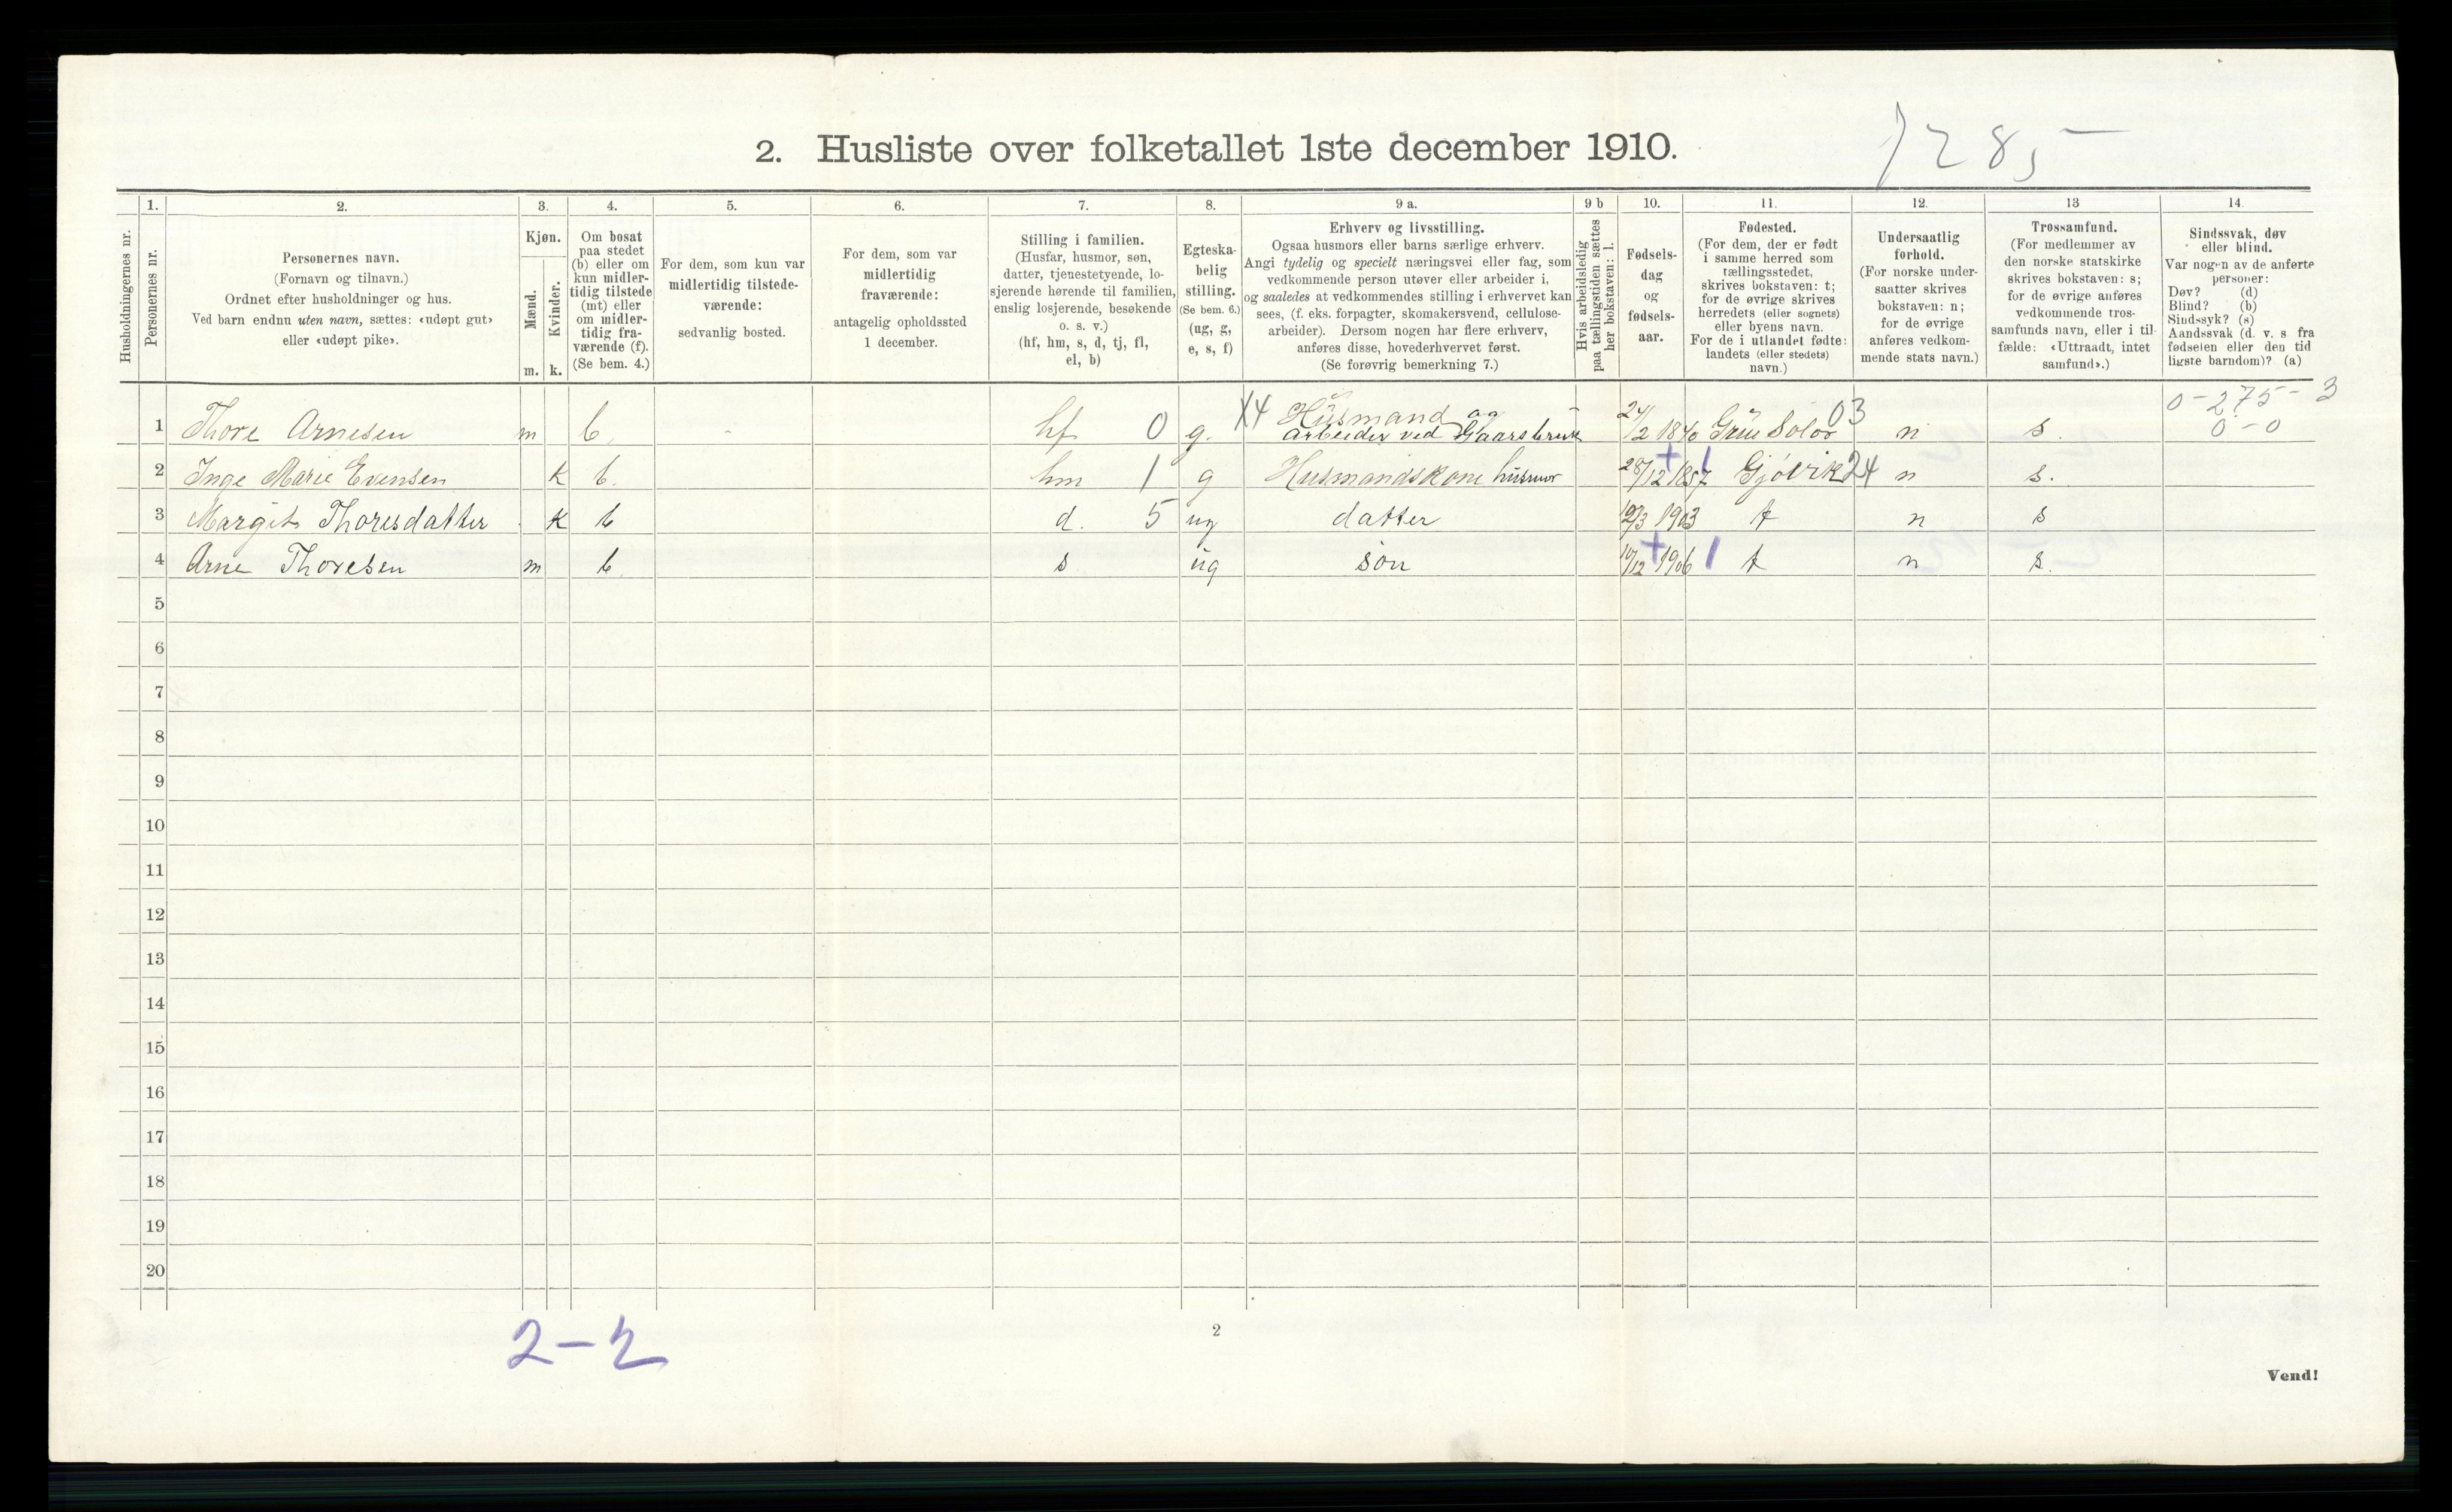 2. Husliste over folketallet 1ste december 1910.
Husholdningernes nr.
1.
Personernes nr.
2.
Personernes navn.
(Fornavn og tilnavn.)
Ordnet efter husholdninger og hus.
Ved barn endnu uten navn, sættes: «udøpt gut»
eller «udøpt pike».
3.
Kjøn.
Mænd.
Kvinder.
m. k.
4.
Om bosat
paa stedet
(b) eller om
kun midler-
tidig tilstede
(mt) eller
om midler-
tidig fra-
værende (f).
(Se bem. 4.)
5.
For dem, som kun var
midlertidig tilstede-
værende:
sedvanlig bosted.
6.
For dem, som var
midlertidig
fraværende:
antagelig opholdssted
1 december.
7.
Stilling i familien.
(Husfar, husmor, søn,
datter, tjenestetyende, lo-
sjerende hørende til familien,
enslig losjerende, besøkende
o. s. v.)
(hf, hm, s, d, tj, fl,
el, b)
8.
Egteska-
belig
stilling.
(Se bem. 6.)
(ug, g,
e, s, f)
9 a.
Erhverv og livsstilling.
Ogsaa husmors eller barns særlige erhverv.
Angi tydelig og specielt næringsvei eller fag, som
vedkommende person utøver eller arbeider i,
og saaledes at vedkommendes stilling i erhvervet kan
sees, (f. eks. forpagter, skomakersvend, cellulose-
arbeider). Dersom nogen har flere erhverv,
anføres disse, hovederhvervet først.
(Se forøvrig bemerkning 7.)
9 b
Hvis arbeidsledig
paa tællingstiden sættes
her bokstaven: l.
10.
Fødsels-
dag
og
fødsels-
aar.
11.
Fødested.
(For dem, der er født
i samme herred som
tællingsstedet,
skrives bokstaven: t;
for de øvrige skrives
herredets (eller sognets)
eller byens navn.
For de i utlandet fødte:
landets (eller stedets)
navn.)
12.
Undersaatlig
forhold.
(For norske under-
saatter skrives
bokstaven: n;
for de øvrige
anføres vedkom-
mende stats navn.)
13
Trossamfund.
(For medlemmer av
den norske statskirke
skrives bokstaven: s;
for de øvrige anføres
vedkommende tros-
samfunds navn, eller i til-
fælde: «Uttraadt, intet
samfund».)
14.
Sindssvak, døv
eller blind.
Var nogen av de anførte
personer:
Døv? (d)
Blind? (b)
Sindssyk? (s)
Aandssvak (d. v. s fra
fødselen eller den tid
ligste barndom)? (a)
0-275-3
1 Thore Arnesen m b. hf 0 g. X4 Husmand og
arbeider ved Gaarsbruk 24/2 1840 Grue Solør 03 n s. 0-0
2 Inge Marie Evensen K b. hm 1 g Husmandskone husmor 28/12 1857 Gjøvik 24 n s.
3 Margit Thoresdatter K b d. 5 ug datter 1903 t n s
4 Arne Thoresen m b s ug søn 1906 t n s.
5
6
7
8
9
10
11
12
13
14
15
16
17
18
19
20
2-2
2
Vend!